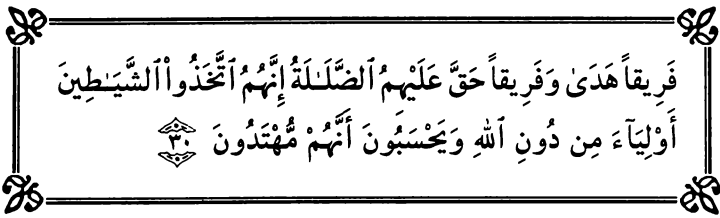 فَرِيقاً هَدَىٰ وَفَرِيقاً حَقَّ عَلَيْهِمُ ٱلضَّلَـٰلَةُ إِنَّهُمُ ٱتَّخَذُوا۟ ٱلشَّيَـٰطِينَ
أَوْلِيَآءَ مِن دُونِ ٱللهِ وَيَحْسَبُونَ أَنَّهُمْ مُّهْتَدُونَ ٣٠